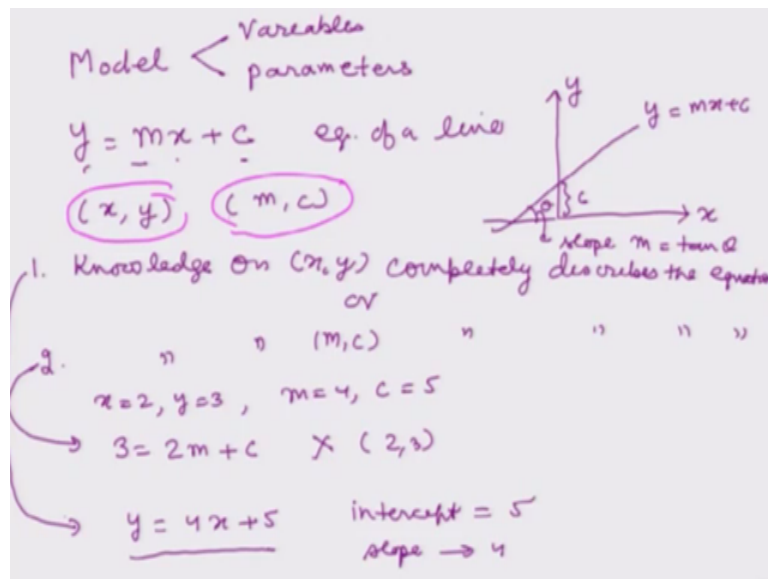 Model < Vareables
parameters
y = mx + c eq. of a line
(x, y) (m, c)
y
y = mx+c
c
θ
x
slope m = tan θ
1. Knowledge on (x, y) completely describes the equation
or
2. " " (m, c) " " " "
x=2, y=3, m=4, c=5
3 = 2m + c X (2,3)
y = 4x+5 intercept = 5
slope → 4